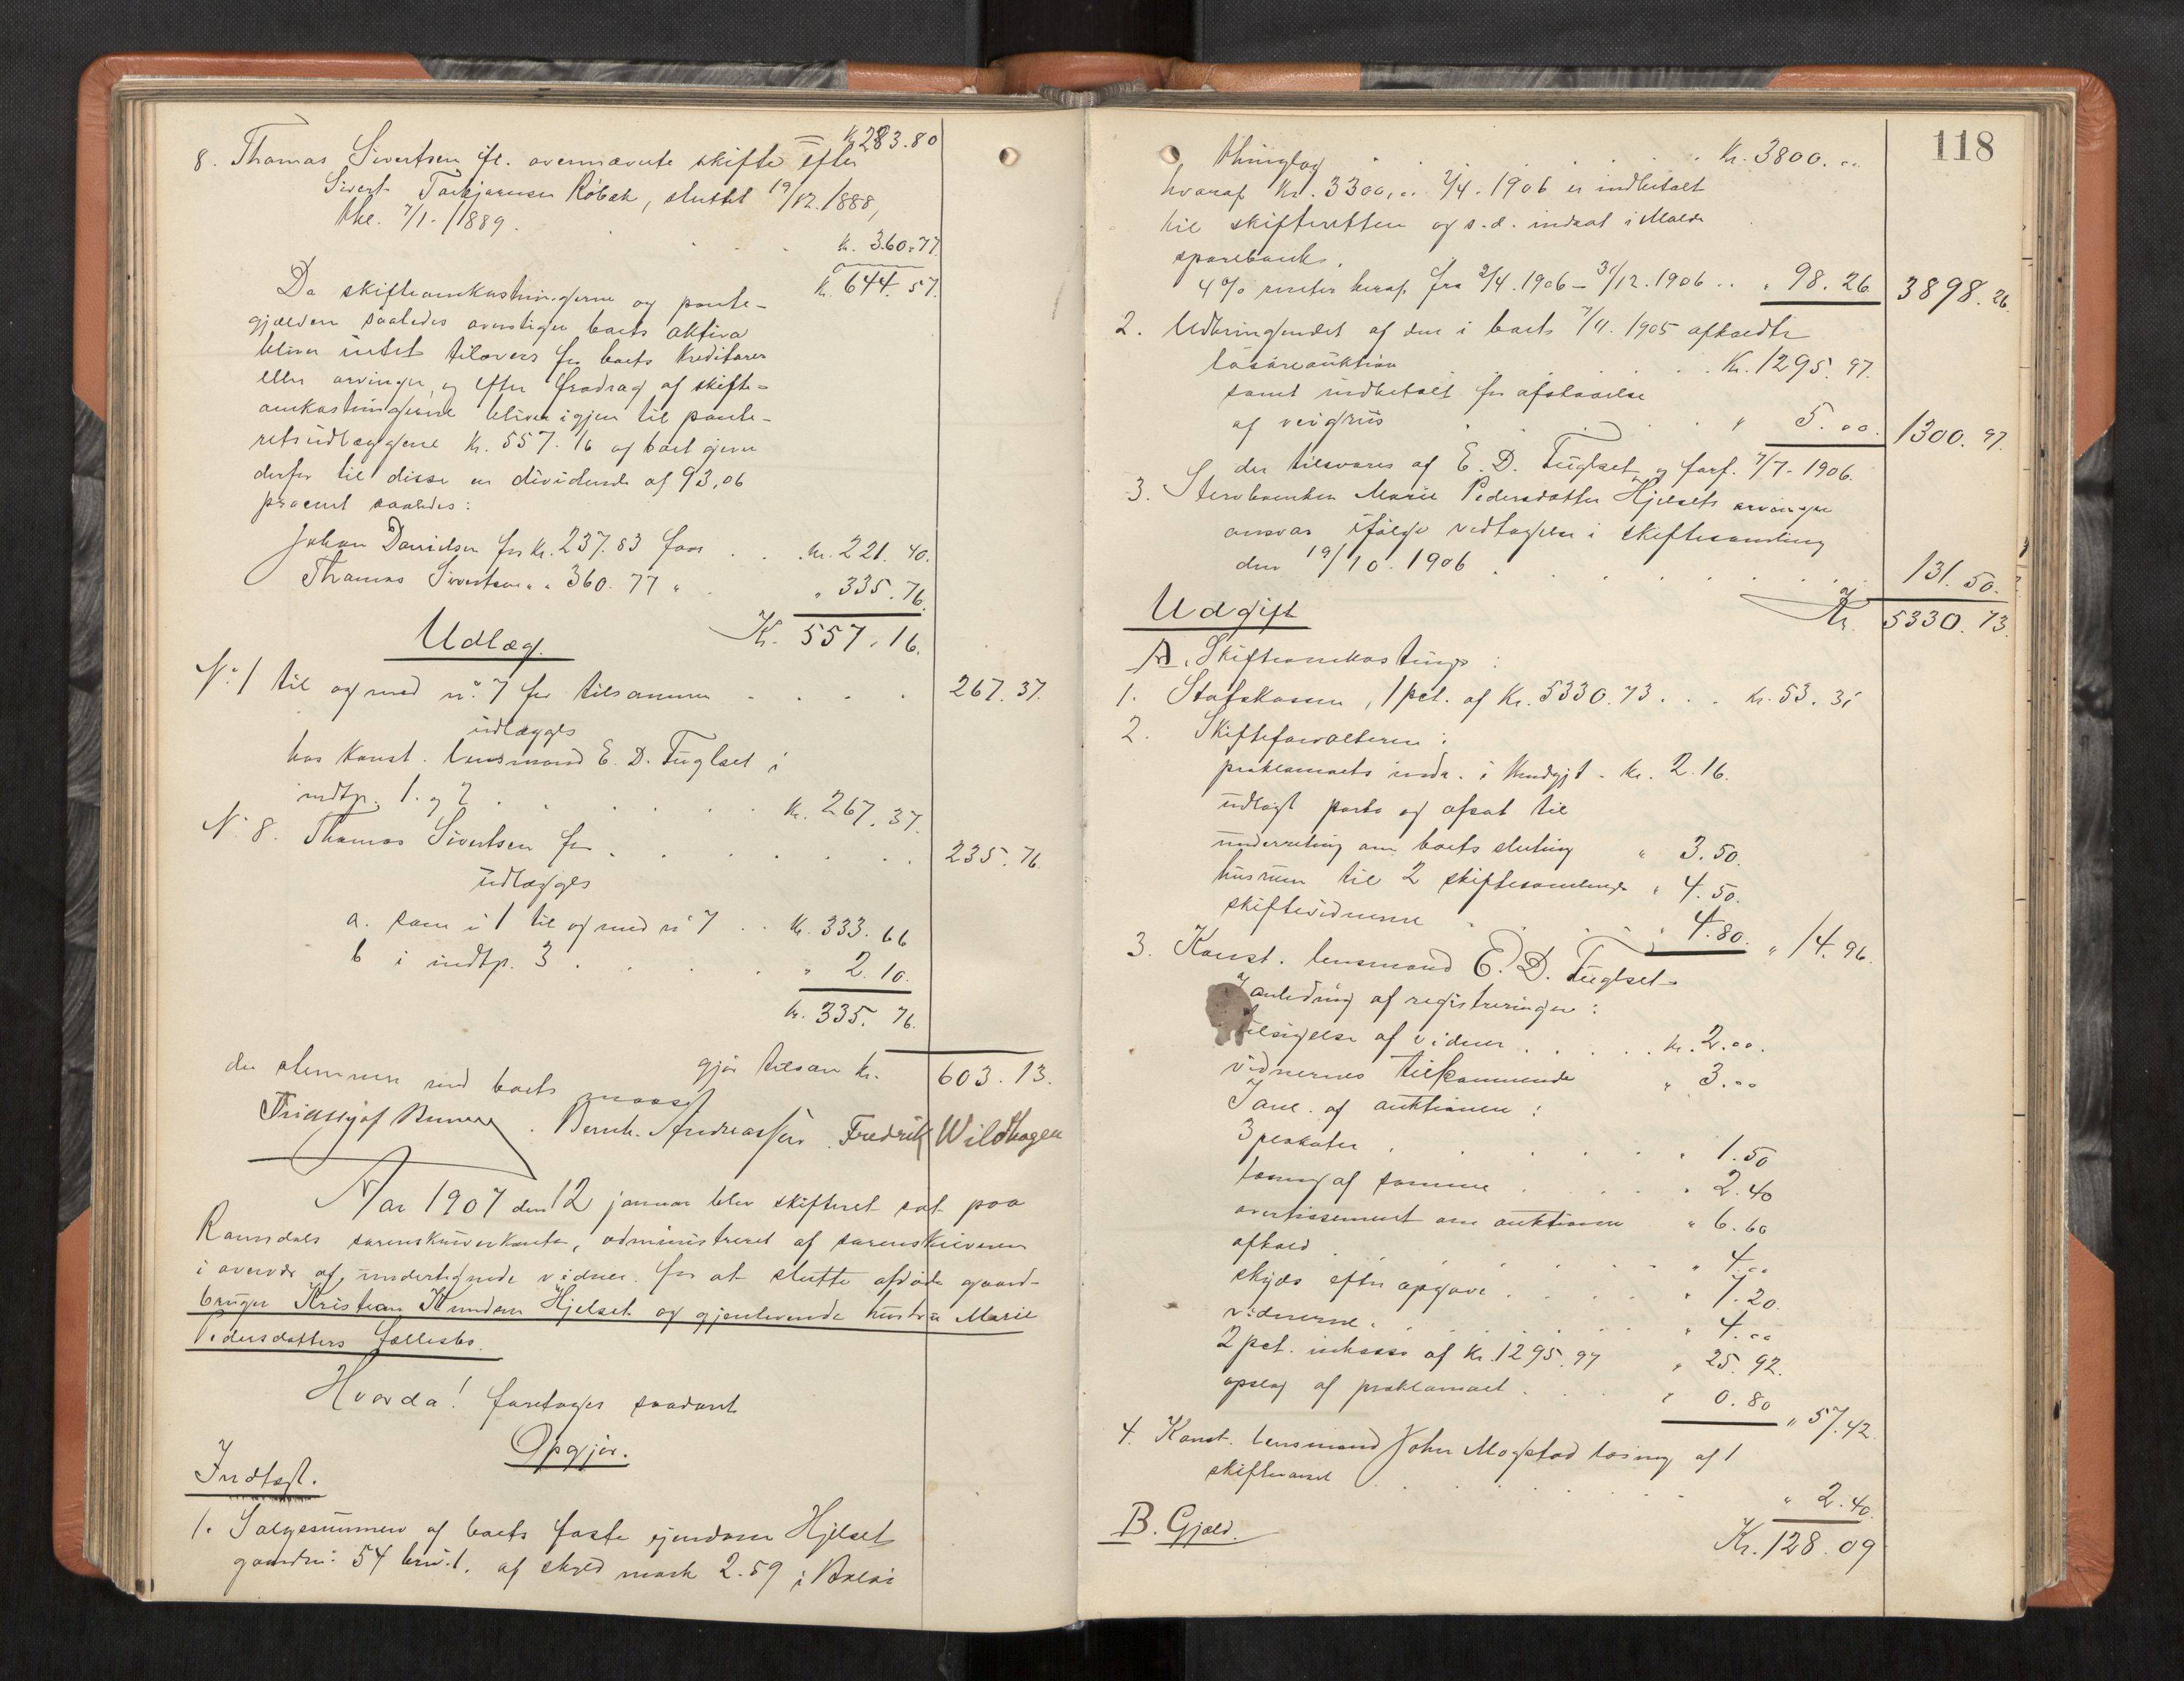 Kr. 283.80
8. Thomas Sivertsen ifl. ovennævnte skifte efter
Sivert Torbjørnsen Röbek, sluttet 19/12. 1888,
thl. 7/1. 1889. . . . kr. 360.77
kr. 644.57.
Da skifteomkostningerne og pante-
gjælden saaledes overstiger boets aktiva
bliver intet tilovers for boets kreditorer
eller arvinger og efter fradrag af skifte-
omkostningerne bliver igjen til pante-
retsudlæggene kr. 557.16 og boet giver
derfor til disse en dividende af 93,06
procent saaledes:
Johan Davidsen for kr. 237.83 faar . . kr. 221.40.
Thomas Sivertsen " " 360.77 " . " 335.76.
Kr. 557.16.
Udlæg.
No. 1 til og med no. 7 for tilsammen . . . . 267.37.
udlægges
hos konst. lensmand E. D. Fuglset i
indtp. 1. og 2 . . . . . . kr. 267.37.
No. 8. Thomas Sivertsen for . . . . . . . 235.76.
udlægges
a. som i 1 til og med no 7 . . kr. 333.66
b i indtp. 3 . . . . . " 2.10.
kr. 335.76.
gjör tilsam kr. 603.13.
der stemmer med boets masse
Bernh. Andreassen. Fredrik Wildhagen
Aar 1907 den 12 januar blev skifteret sat paa
Romsdals sorenskriverkontor, administreret af sorenskriveren
i overvær af undertegnede vidner for at slutte afdöde gaard-
bruger Kristian Knudsen Hjelset og gjenlevende hustru Marie
Pedersdatters fællesbo.
Hvorda! foretoges saadant
Opgjör.
Indtægt.
1. Salgssummen af boets faste eiendom Hjelset
gaardsno: 54 brno. 1. af skyld mark 2.59 i Bolsö
118
thinglag . . . . . . . Kr. 3800...
hvoraf kr. 3300,.. 2/4. 1906 er indbetalt
til skifteretten og s.d. indsat i Molde
sparebank.
4% renter heraf fra 2/4. 1906 - 31/12. 1906 . . " 98.26 3898.26.
2. Udbringendet af den i boet 7/11. 1905 afholdte
lösöreauktion . . . . . . Kr. 1295.97.
samt indbetalt for afstaaelse
af veigrus . . . . . " 5... 1300.97.
der tilsvares af E. D. Fuglset og forf. 7/7. 1906.
3. Stervboenken Marie Pedersdatter Hjelsets arvinger
ansvar ifölge vedtagelse i skiftesamling
den 19/10. 1906 . . . . . . . 131.50.
Kr. 5330.73.
Udgift
A. Skifteomkostninger:
1. Statskassen, 1 pct. af Kr. 5330.73 . . . kr. 53.31
2. Skifteforvalteren:
proklamaets inds. i Kundgjt. - kr. 2.16.
udlagt porto og afsat til
underretning om boets slutning " 3.50.
husrum til 2 skiftesamlinger " 4.50.
skiftevidnerne . . . . " 4.80. " 14.96.
3. Konst. lensmand E. D. Fuglset
I anledning af registreringen:
tilsigelse af vidner . . . . kr. 2...
vidnernes tilkommende " 3...
I anl. af auktionen:
3 plakater . . . . . " 1.50
læsning af samme . . . . " 2.40
avertissement om auktionen " 6.60
afhold . . . . . . " 4...
skyds efter opgave . . . . " 7.20.
vidnerne . . . . . . " 4...
2 pct. inkasso af Kr. 1295.97 " 25.92.
opslag af proklamaet . . . " 0.80 " 57.42.
4. Konst. lensmand John Mogstad læsning af 1
skiftevarsel . . . . . . . " 2.40.
Kr. 128.09
B. Gjæld.